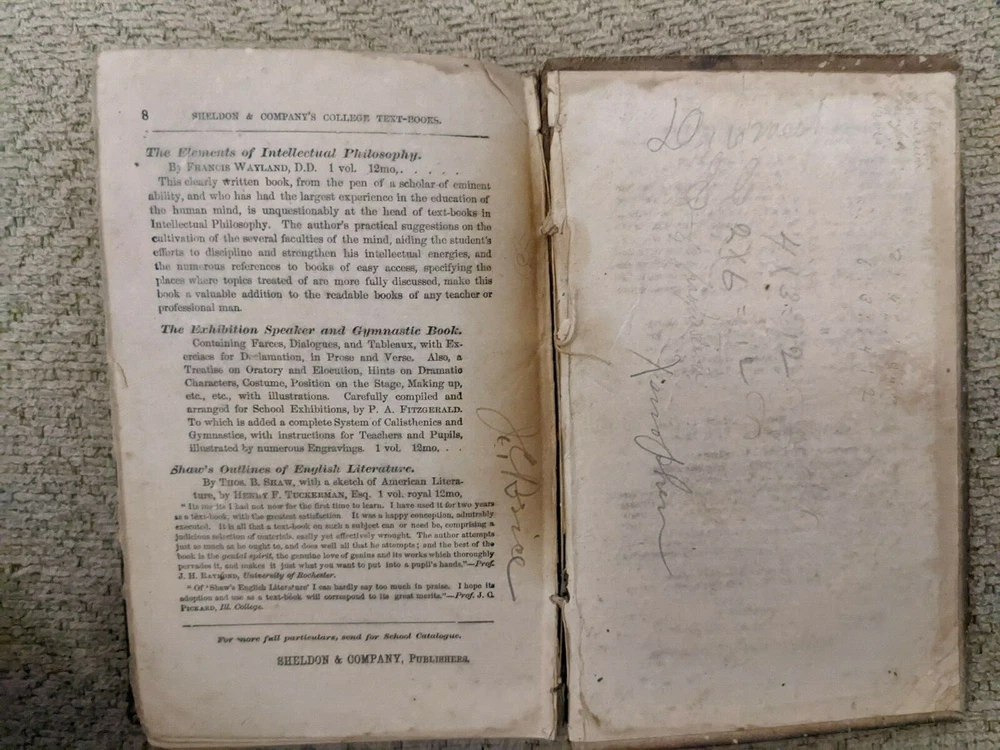 8 SHELDON & COMPANY'S COLLEGE TEXT-BOOKS.
The Elements of Intellectual Philosophy.
By FRANCIS WAYLAND, D.D. 1 vol. 12mo, . . . . .
This clearly written book, from the pen of a scholar of eminent
ability, and who has had the largest experience in the education of
the human mind, is unquestionably at the head of text-books in
Intellectual Philosophy. The author's practical suggestions on the
cultivation of the several faculties of the mind, aiding the student's
efforts to discipline and strengthen his intellectual energies, and
the numerous references to books of easy access, specifying the
places where topics treated of are more fully discussed, make this
book a valuable addition to the readable books of any teacher or
professional man.
The Exhibition Speaker and Gymnastic Book.
Containing Farces, Dialogues, and Tableaux, with Ex-
ercises for Declamation, in Prose and Verse. Also, a
Treatise on Oratory and Elocution, Hints on Dramatic
Characters, Costume, Position on the Stage, Making up,
etc., etc., with illustrations. Carefully compiled and
arranged for School Exhibitions, by P. A. FITZGERALD.
To which is added a complete System of Calisthenics and
Gymnastics, with instructions for Teachers and Pupils,
illustrated by numerous Engravings. 1 vol. 12mo, . .
Shaw's Outlines of English Literature.
By THOS. B. SHAW, with a sketch of American Litera-
ture, by HENRY F. TUCKERMAN, Esq. 1 vol. royal 12mo,
"Its merits I had not now for the first time to learn. I have used it for two years
as a text-book, with the greatest satisfaction. It was a happy conception, admirably
executed. It is all that a text-book on such a subject can or need be, comprising a
judicious selection of materials, easily yet effectively wrought. The author attempts
just as much as he ought to, and does well all that he attempts; and the best of the
book is the genial spirit, the genuine love of genius and its works which thoroughly
pervades it, and makes it just what you want to put into a pupil's hands."—Prof.
J. H. RAYMOND, University of Rochester.
"Of 'Shaw's English Literature' I can hardly say too much in praise. I hope its
adoption and use as a text-book will correspond to its great merits."—Prof. J. G.
PICKARD, Ill. College.
For more full particulars, send for School Catalogue.
SHELDON & COMPANY, PUBLISHERS.
Price
2X6=
4X3=12